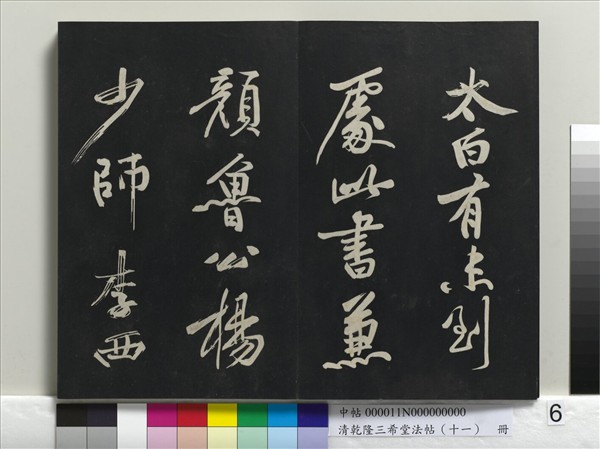 太白有未到
處此書兼
顏魯公楊
少師李西
中帖 000011N000000000
清乾隆三希堂法帖（十一） 冊
6